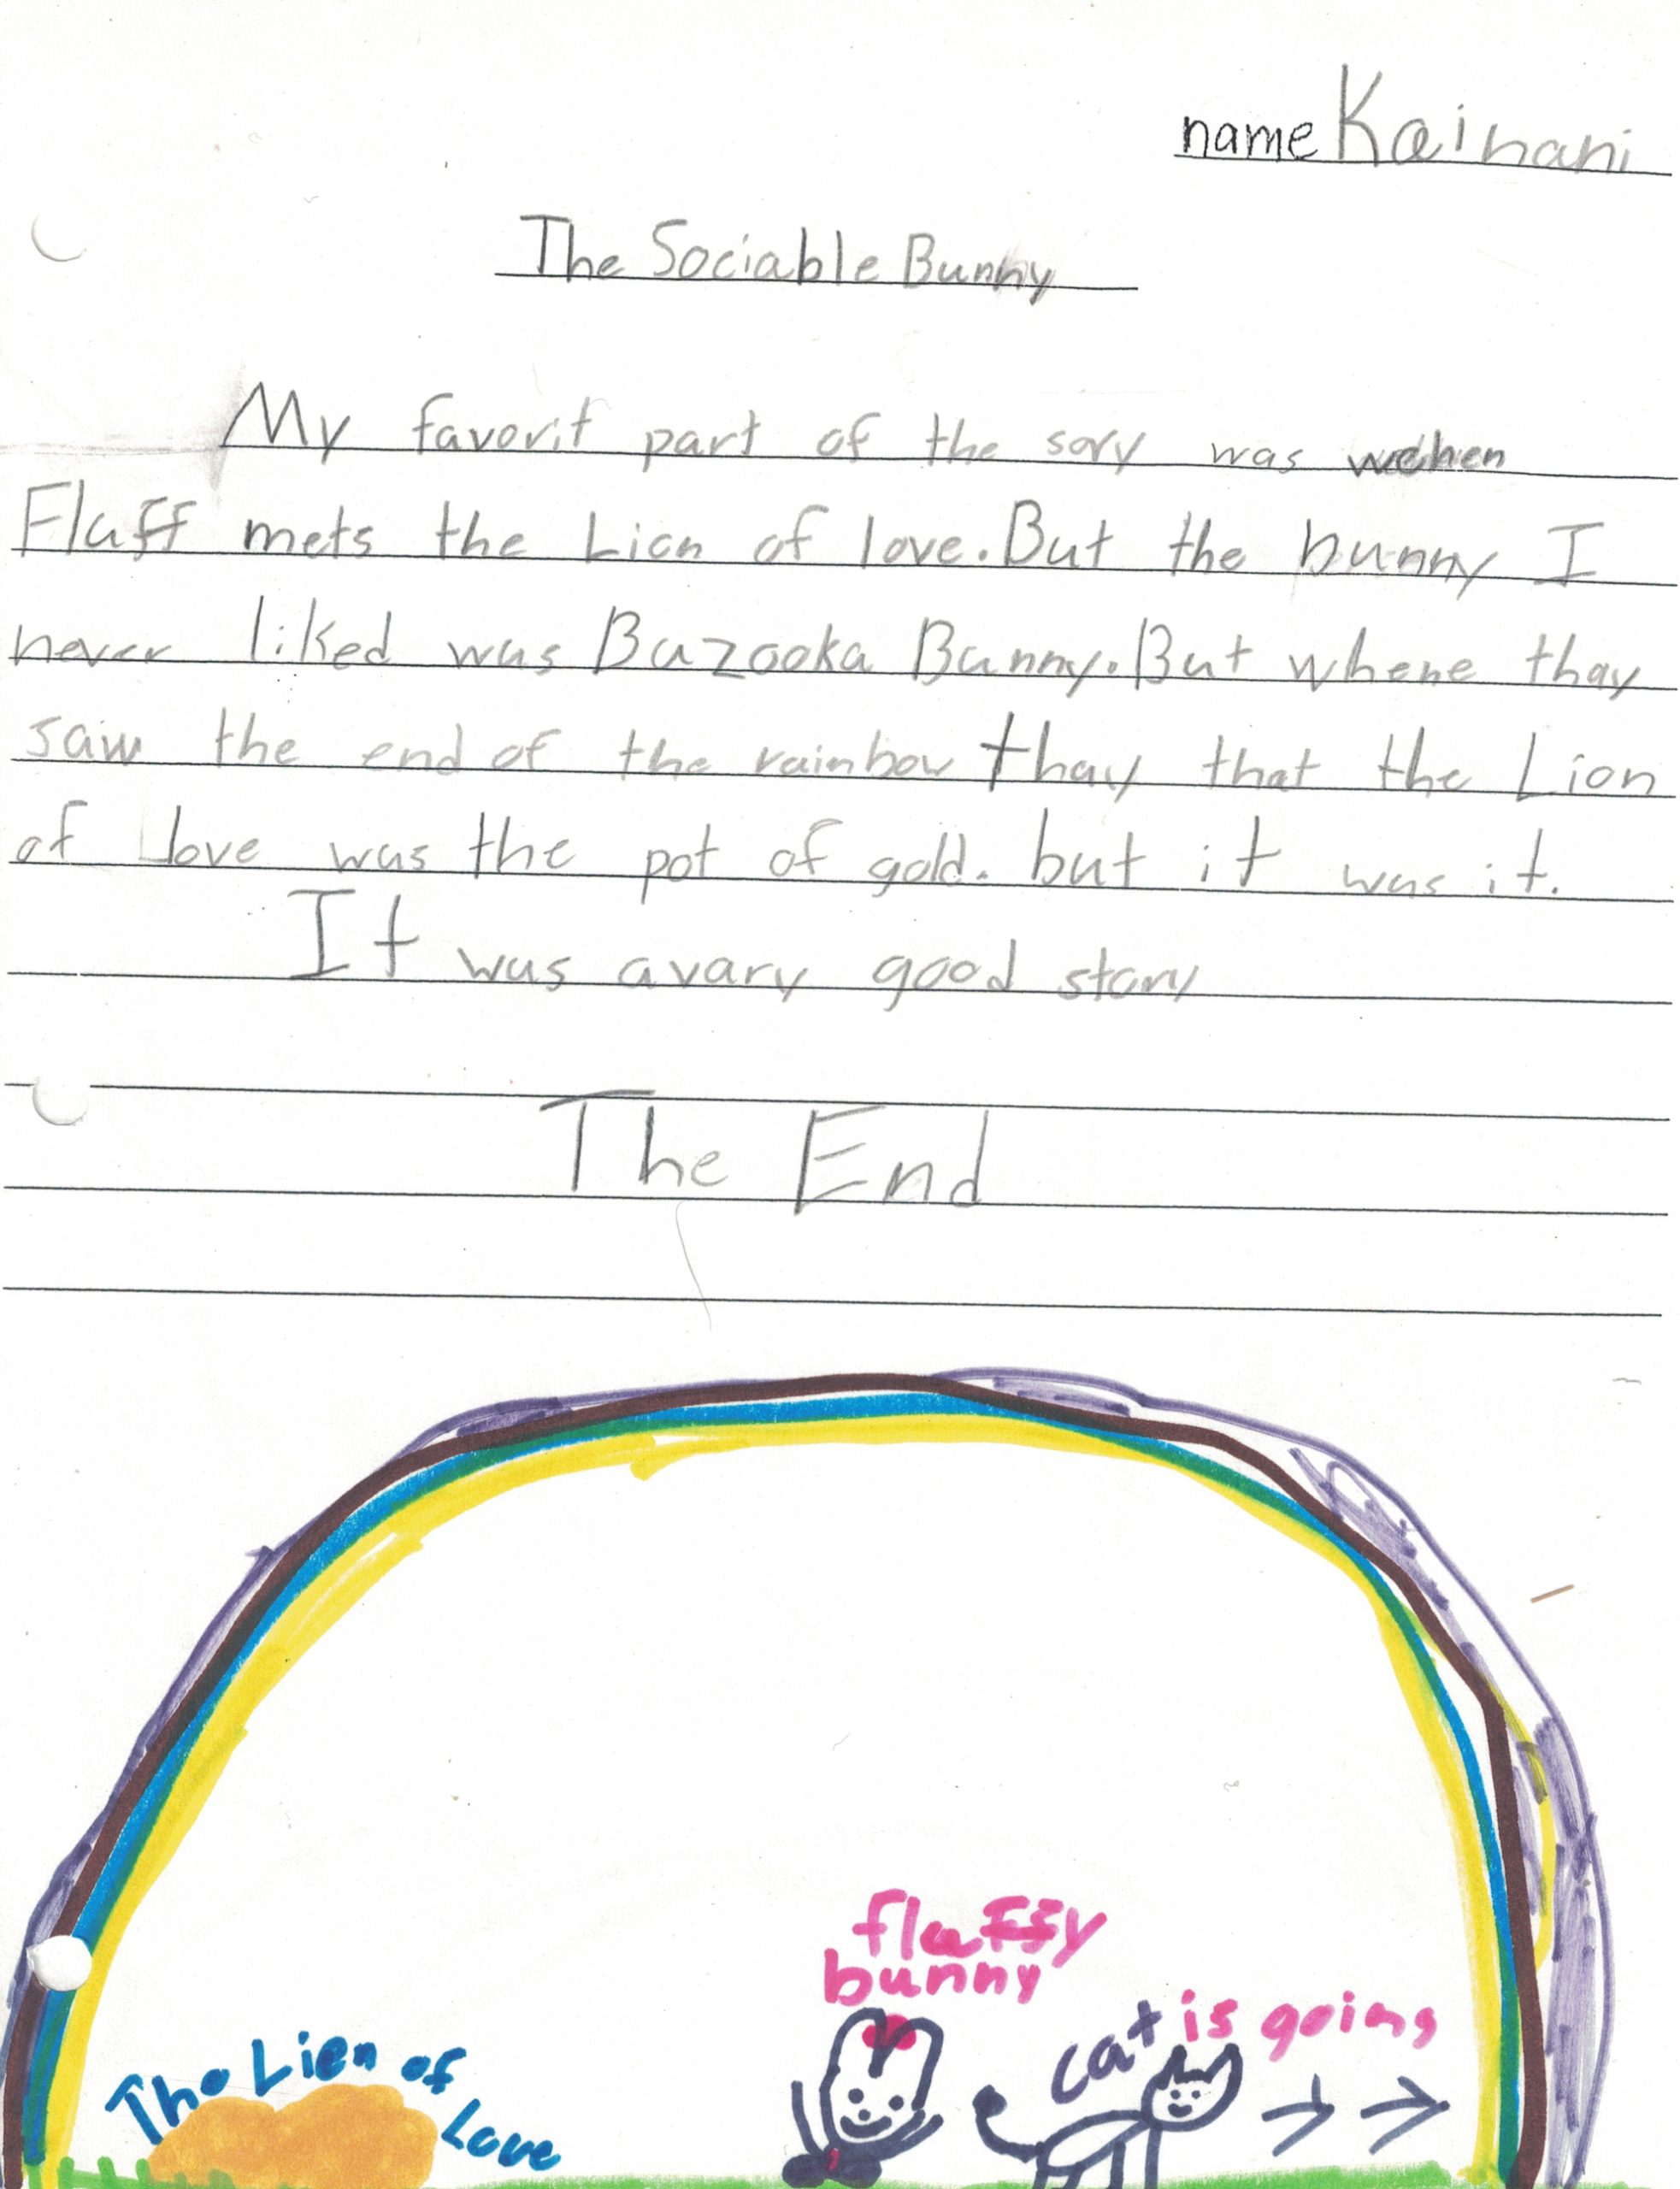 name Kainani
The Sociable Bunny
My favorit part of the sory was wehen
Flaff mets the Lion of love. But the bunny I
never liked was Bazooka Bunny. But whene thay
saw the end of the rainbow thay that the Lion
of love was the pot of gold. but it was it.
It was avary good story
The End
fluffy
bunny
cat is going
The Lien of
Love